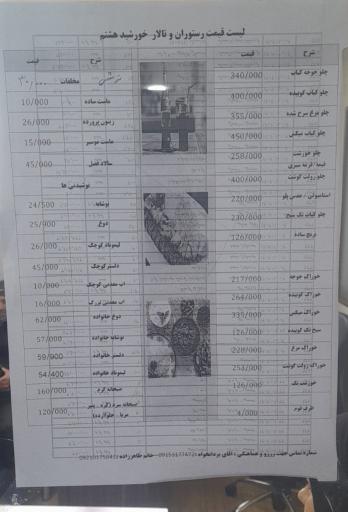 لیست قیمت رستوران و تالار خورشید هشتم
شرح قیمت
چلو جوجه کباب 340/000
چلو کباب کوبیده 400/000
چلو مرغ سرخ شده 355/000
چلو کباب میکس 450/000
چلو خورشت 258/000
قیمه/قرمه سبزی
چلو رولت گوشت 400/000
استامبولی / عدس پلو 220/000
چلو کباب تک سیخ 230/000
برنج ساده 126/000
خوراک جوجه 217/000
خوراک کوبیده 264/000
خوراک میکس 335/000
سیخ تک کوبیده 126/000
خوراک مرغ 228/000
خوراک رولت گوشت 253/000
خورشت تک 126/000
ظرف دوم 4/000
شرح قیمت
مخلفات
ماست ساده 10/000
زیتون پرورده 26/000
ماست موسیر 15/000
سالاد فصل 45/000
نوشیدنی ها
نوشابه 24/500
دوغ 25/900
لیموناد کوچک 26/000
دلستر کوچک 45/000
آب معدنی کوچک 10/000
آب معدنی بزرگ 16/000
دوغ خانواده 62/000
نوشابه خانواده 57/000
دلستر خانواده 59/900
لیموناد خانواده 54/400
صبحانه گرم 160/000
صبحانه سرد (کره . پنیر 120/000
مربا . حلوا ارده)
شماره تماس جهت رزرو و هماهنگی : آقای یزدانخواه 09155177472 - خانم طاهرزاده